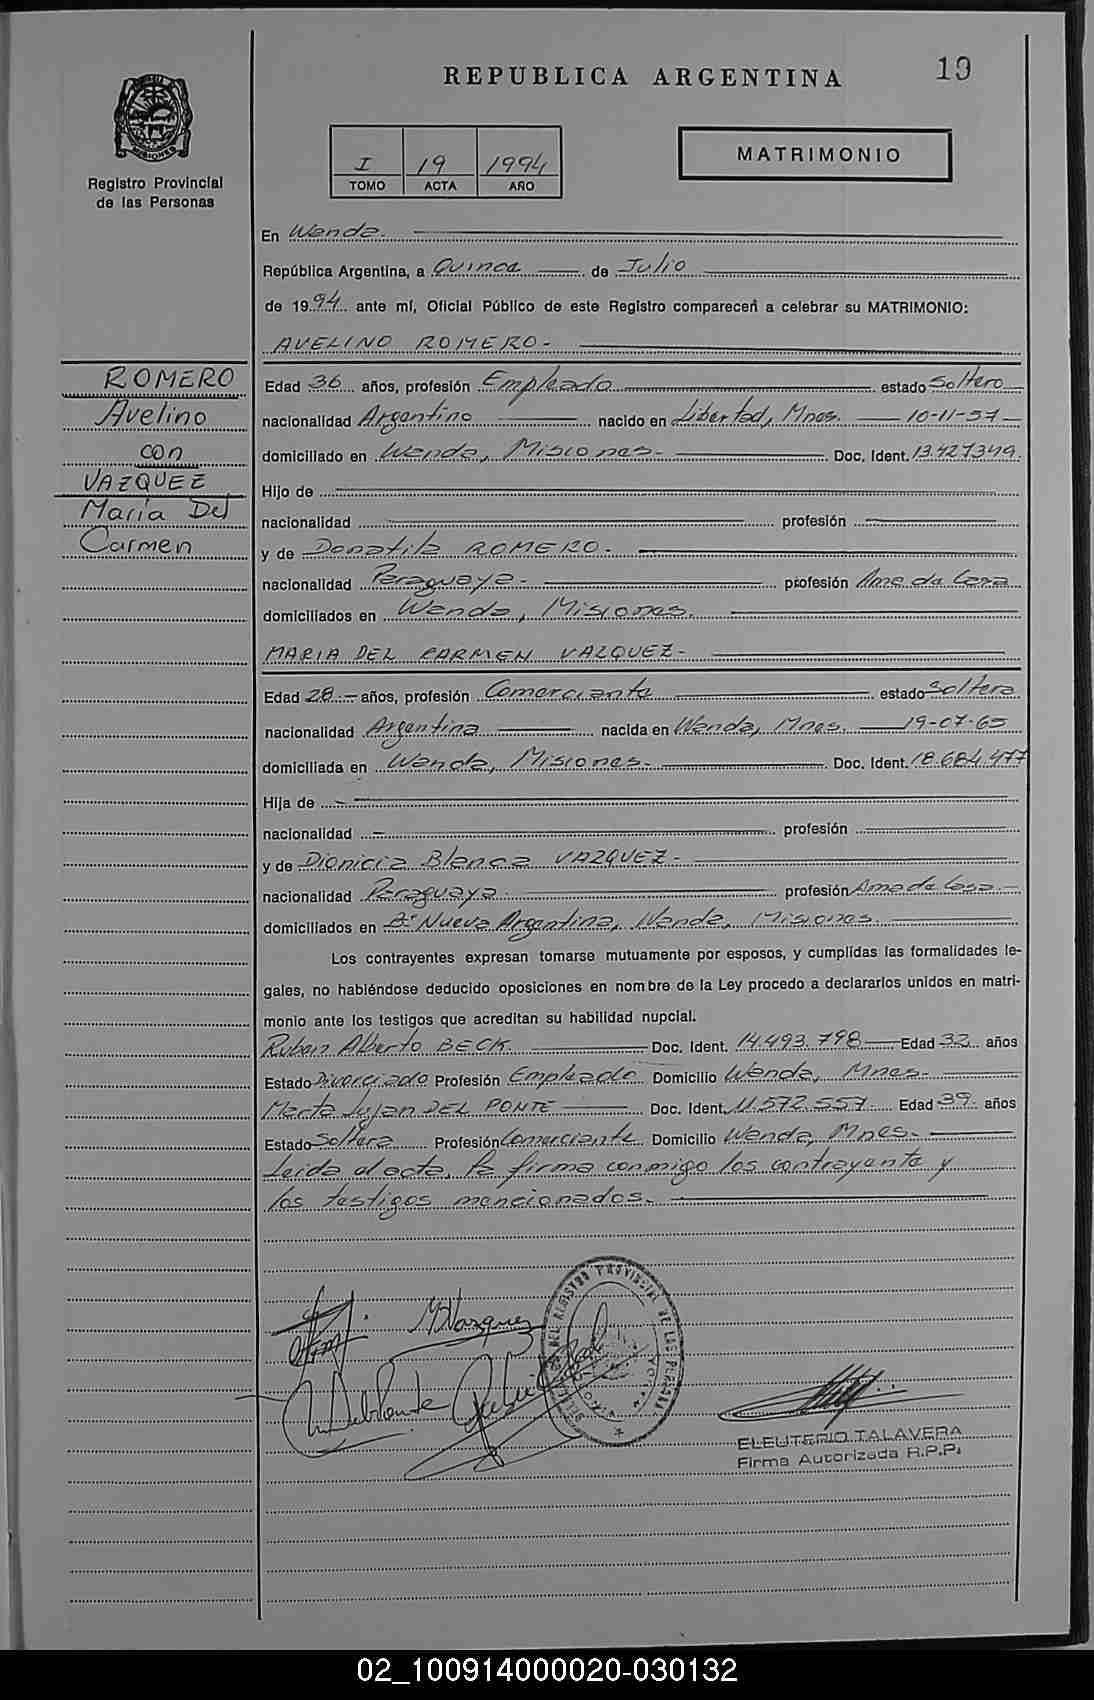 REPUBLICA ARGENTINA
19
MISIONES
Registro Provincial
de las Personas
I 19 1994
TOMO ACTA AÑO
MATRIMONIO
En Wanda.
República Argentina, a Quince de Julio
de 1994 ante mí, Oficial Público de este Registro comparecen a celebrar su MATRIMONIO:
AVELINO ROMERO.-
ROMERO
Avelino
con
VAZQUEZ
María Del
Carmen
Edad 36 años, profesión Empleado estado Soltero
nacionalidad Argentino nacido en Libertad, Mnes. 10-11-57
domiciliado en Wanda, Misiones.- Doc. Ident. 13.427349.
Hijo de
nacionalidad profesión
y de Donatila ROMERO.
nacionalidad Paraguaya.- profesión Ama de Casa
domiciliados en Wanda, Misiones.
MARIA DEL CARMEN VAZQUEZ-
Edad 28.- años, profesión Comerciante estado Soltera
nacionalidad Argentina nacida en Wanda, Mnes. 19-07-65
domiciliada en Wanda, Misiones.- Doc. Ident. 18.684.977
Hija de -
nacionalidad - profesión
y de Dionicia Blanca VAZQUEZ-
nacionalidad Paraguaya. profesión Ama de Casa.-
domiciliados en Bº Nueva Argentina, Wanda, Misiones.
Los contrayentes expresan tomarse mutuamente por esposos, y cumplidas las formalidades le-
gales, no habiéndose deducido oposiciones en nombre de la Ley procedo a declararlos unidos en matri-
monio ante los testigos que acreditan su habilidad nupcial.
Ruben Alberto BECK. Doc. Ident. 14.493.798 Edad 32 años
Estado Divorciado Profesión Empleado Domicilio Wanda, Mnes.-
Marta Lujan DEL PONTE Doc. Ident. 11.572.557 Edad 39 años
Estado Soltera Profesión Comerciante Domicilio Wanda, Mnes.-
Leida el acta, la firma conmigo los contrayente y
los testigos mencionados.-
MVazquez
DEL REGISTRO PROVINCIAL DE LAS PERSONAS
ELEUTERIO TALAVERA
Firma Autorizada R.P.P.
02_100914000020-030132